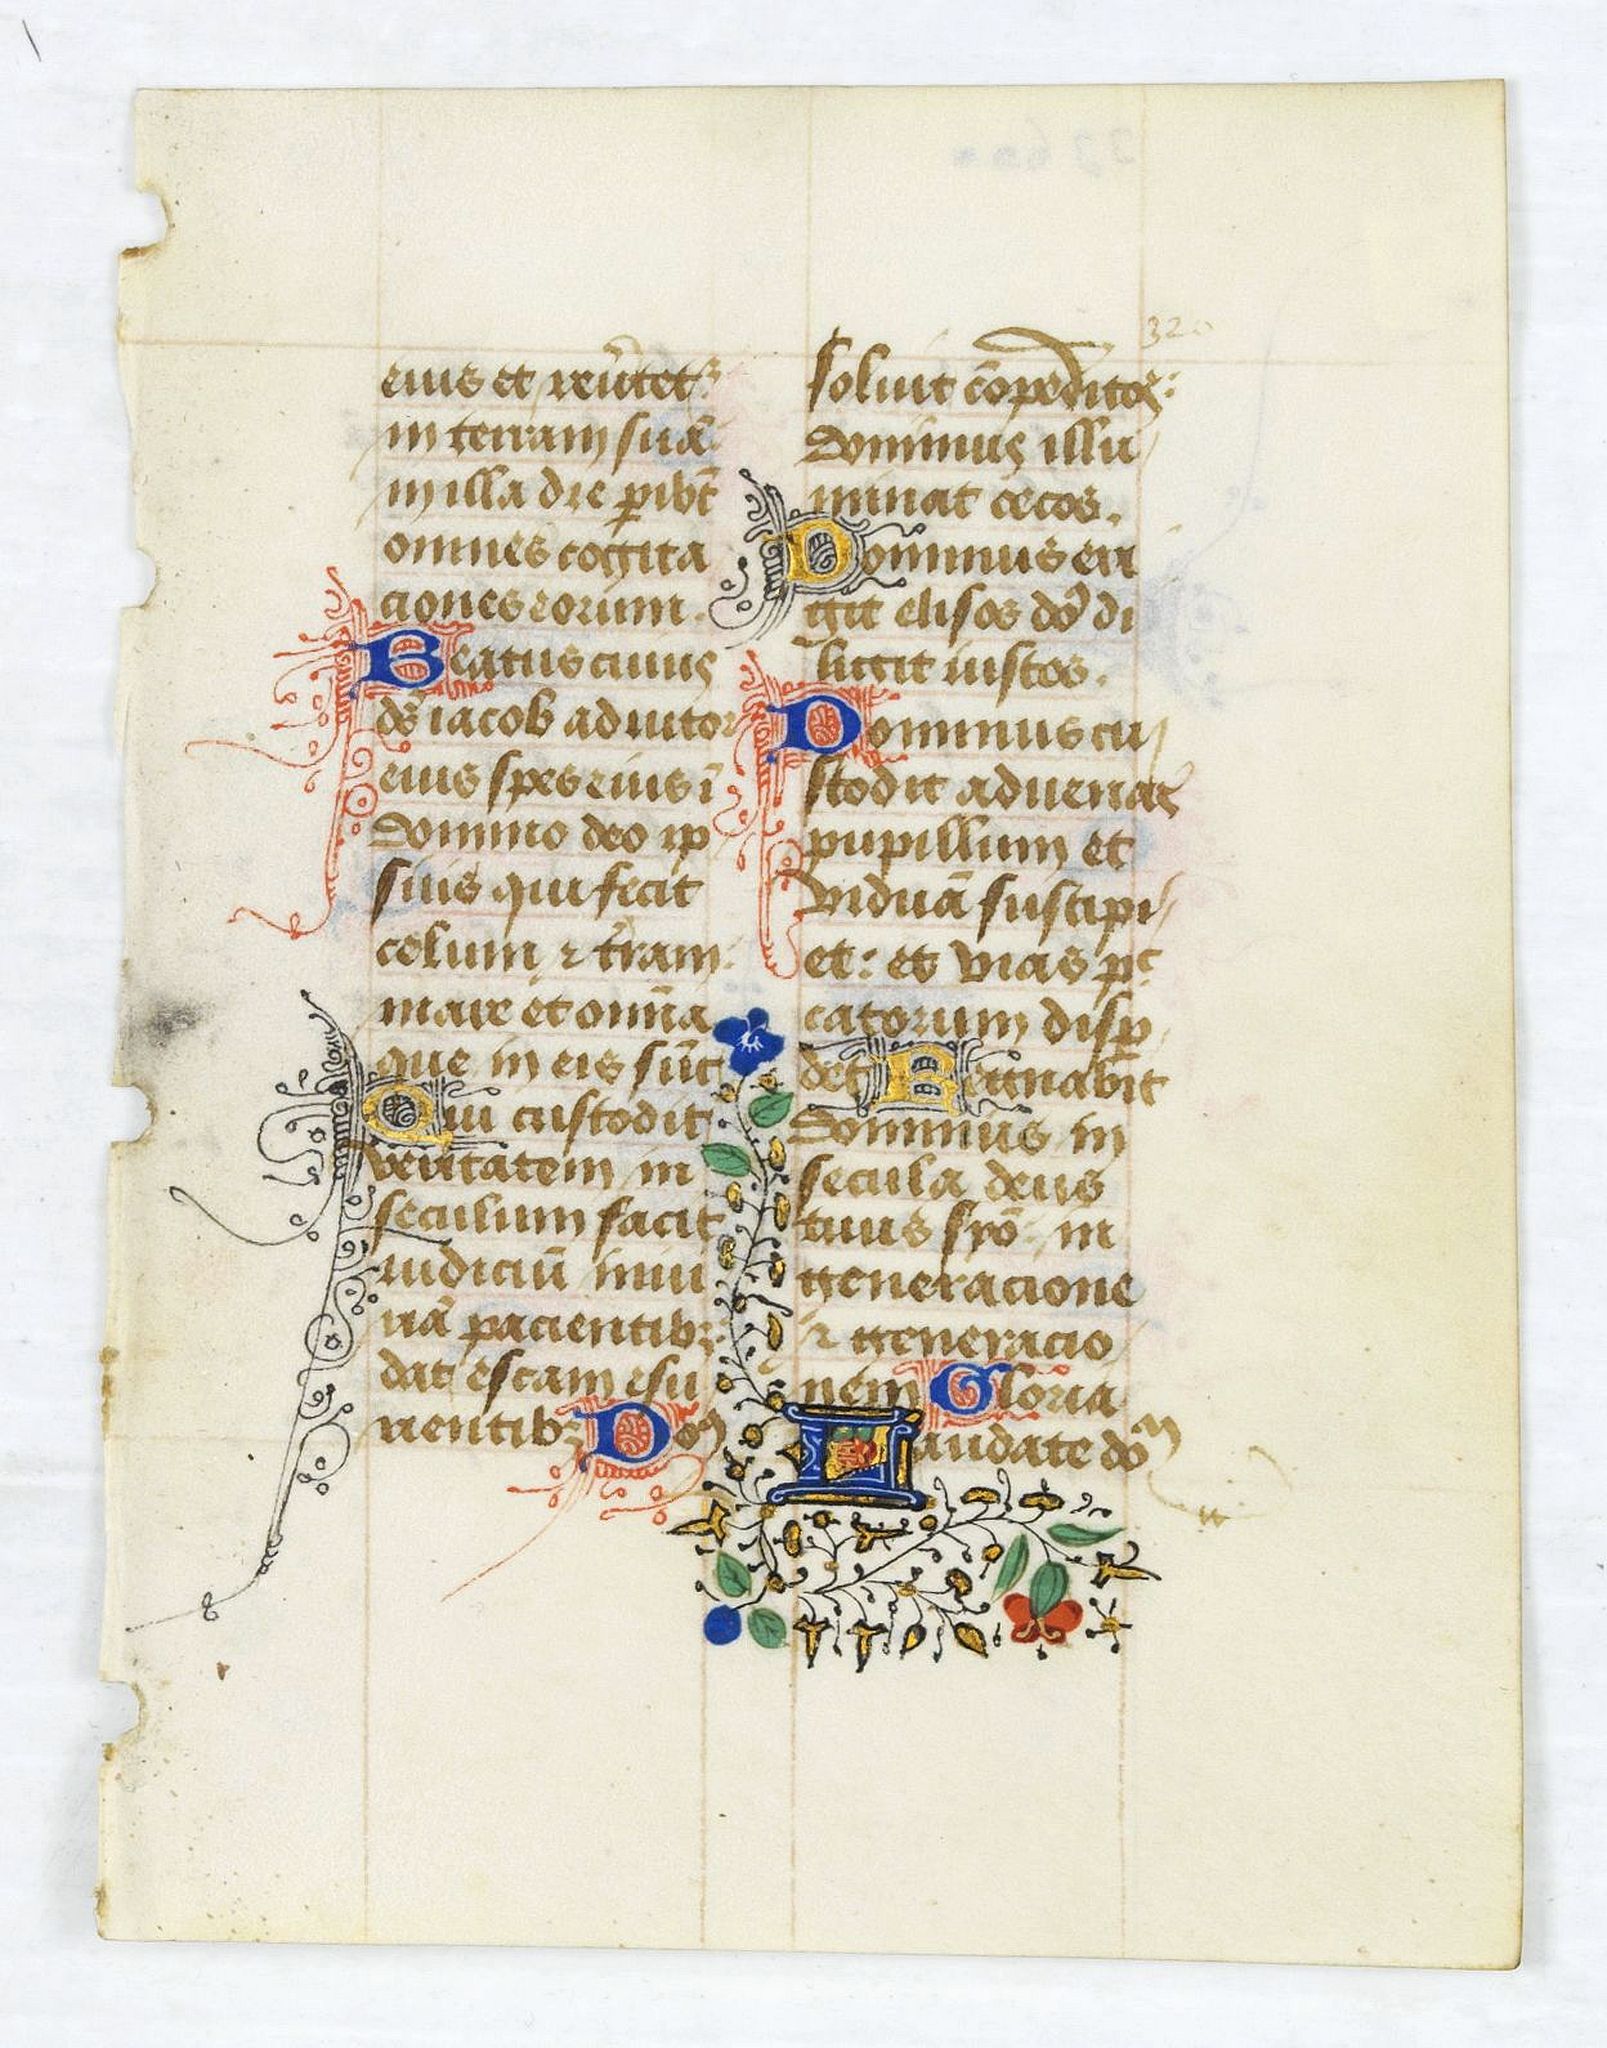 eius et reũtet᷑
in terram suā
in illa die ꝑibt̄
omnes cogita
ciones eorum.
Beatus cuius
ds̄ iacob adiutor
eius spes eius ī
domino deo ip
sius qui fecit
celum ⁊ t̄ram:
mare et omn̄ia
que in eis sūt
Qui custodit
veritatem in
seculum facit
iudiciū iniu
riā pacientibꝫ:
dat escam esu
rientibꝫ Dom̄
320
soluit cōpeditos:
dominus illu
minat cecos.
Dominus eri
git elisos dō di
ligit iustos.
Dominus cu
stodit aduenas
pupillum et
viduā suscipi
et: et vias pc̄
catorum disp̄
det Regnabit
dominus in
secula deus
tuus syō: in
generacione
⁊ generacio
nem Gloria
Laudate dom̄